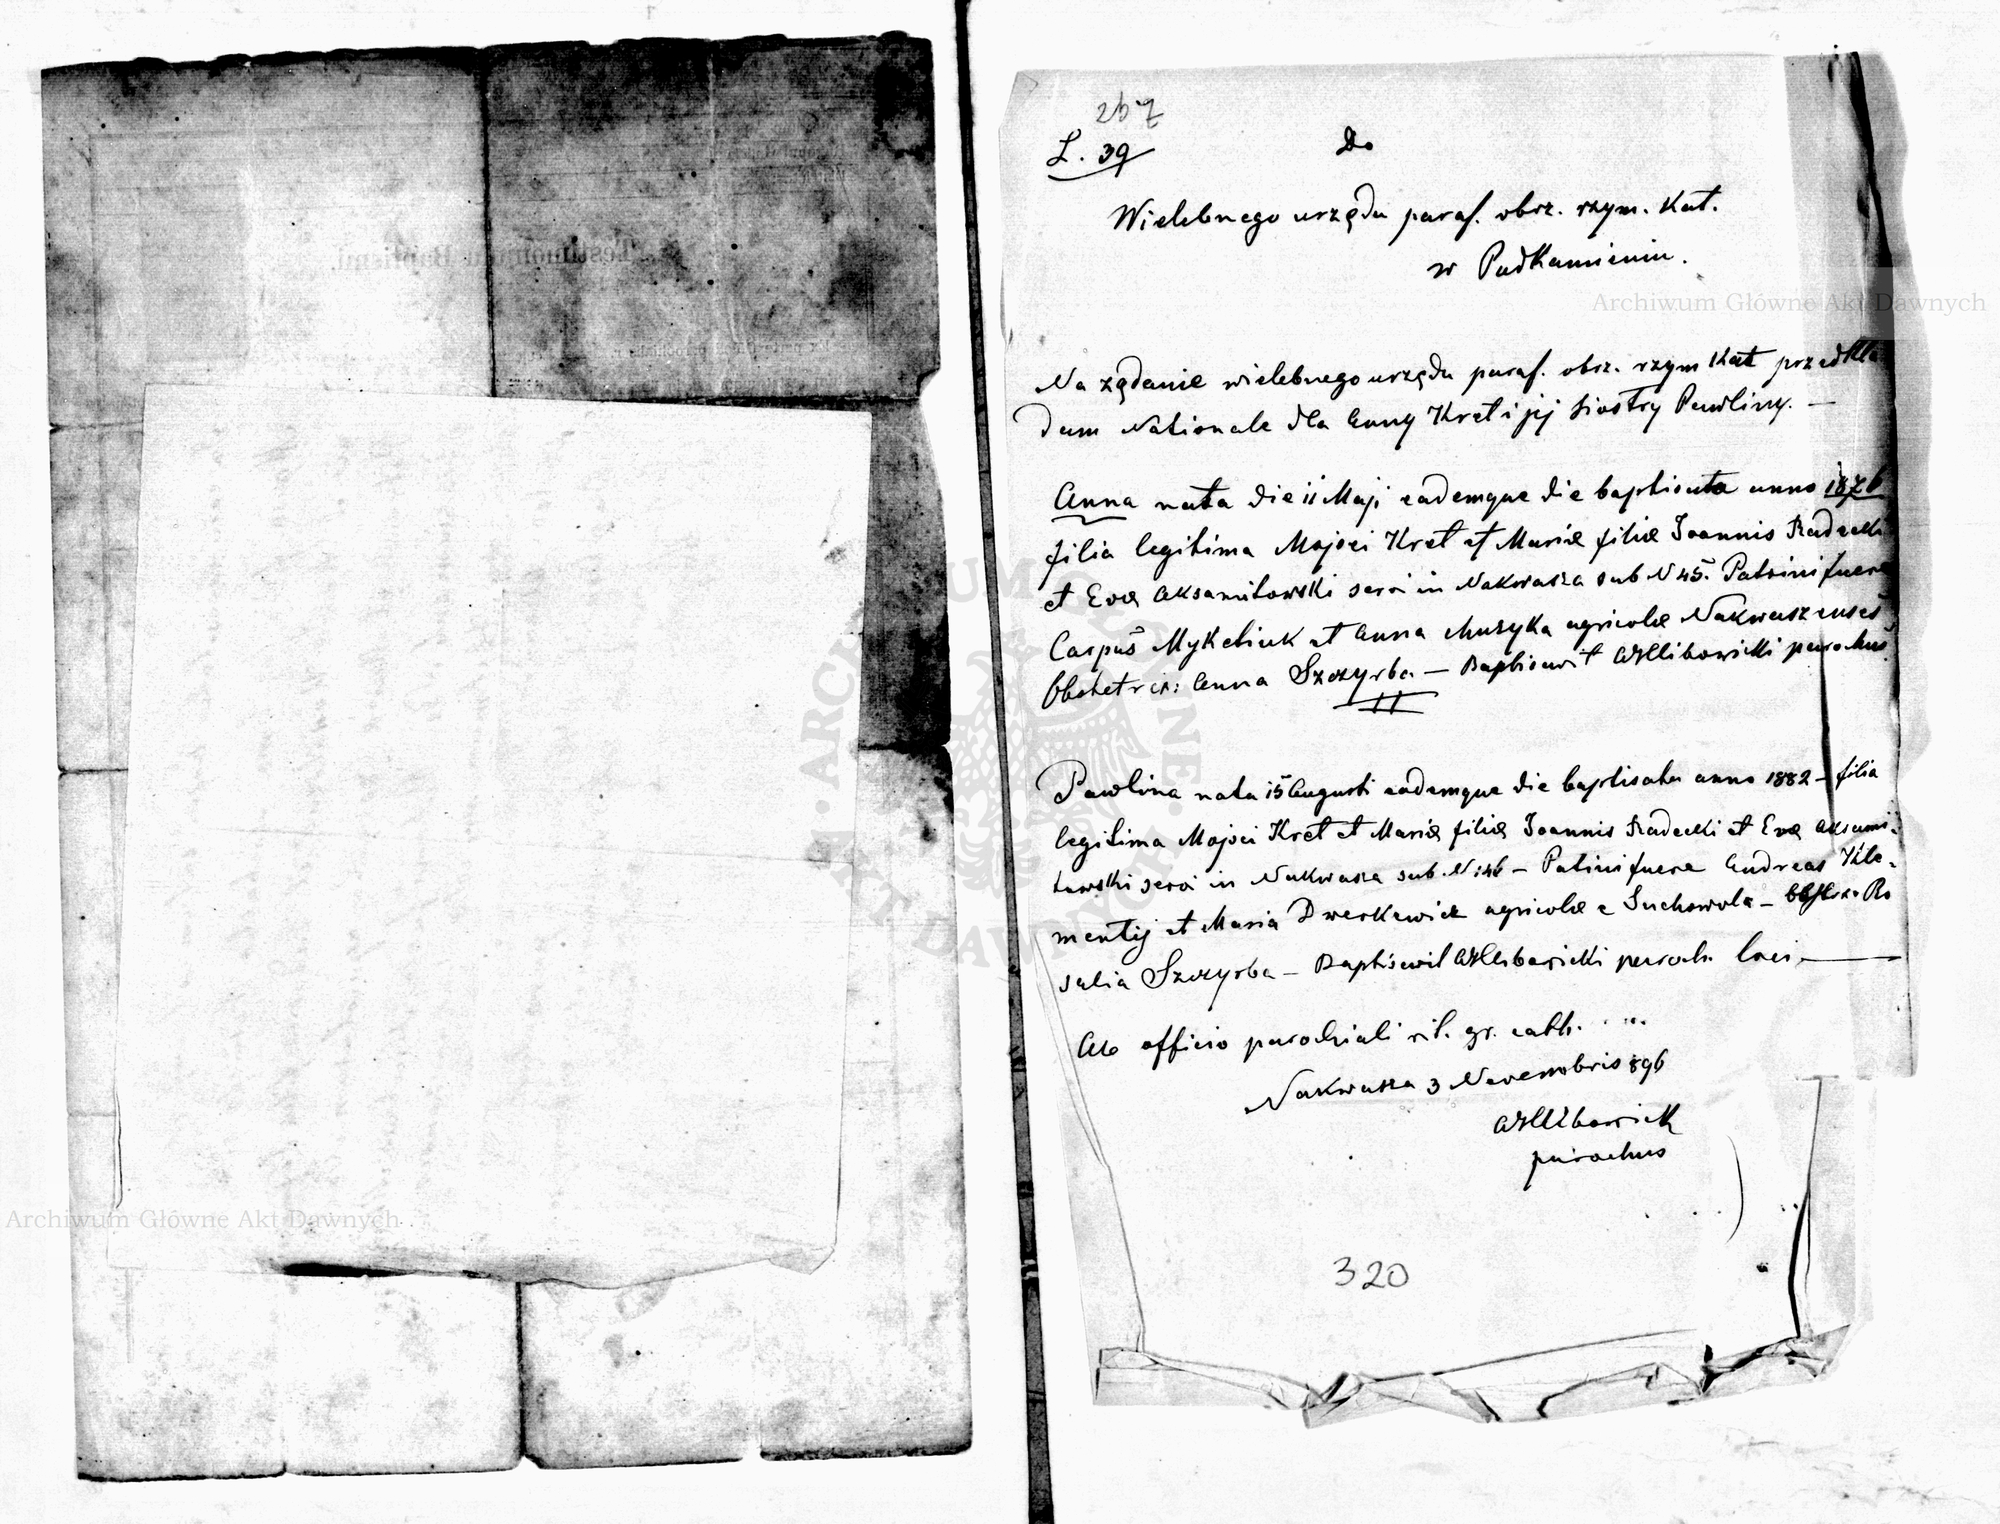 267
L. 39
Do
Wielebnego urzędu paraf. obrz. rzym. Kat.
w Podkamieniu.
Na żądanie wielebnego urzędu paraf. obrz. rzym Kat przedkła
dam Nationale dla Anny Kret i jej siostry Pawliny. —
Anna nata die 11 Maji eademque die baptisata anno 1876
filia legitima Mojsei Kret et Mariæ filiæ Joannis Radecki
et Evæ Aksamitowski servi in Nakwasza sub N 45. Patrini fuere
Carpus Mykeliuk et Anna Muzyka agricolæ Nakwaszenses
Obstetrix: Anna Szczyrba — Baptisavit parochus
Pawlina nata 15 Augusti eademque die baptisata anno 1882 — filia
legitima Mojsei Kret et Mariæ filiæ Joannis Radecki et Evæ Aksami-
towski servi in Nakwasza sub. N: 46 — Patrini fuere Andreas Kle-
mentij et Maria Dwerkewicz agricolæ e Suchowola — Obstetr. Ro
salia Szczyrba — Baptisavit paroch. loci.
Ab officio parochiali rit. gr. cath.
Nakwasza 3 Novembris 896
parochus
320
Testimonium Baptismi.
Archiwum Główne Akt Dawnych
Archiwum Główne Akt Dawnych
ARCHIWUM GŁÓWNE AKT DAWNYCH